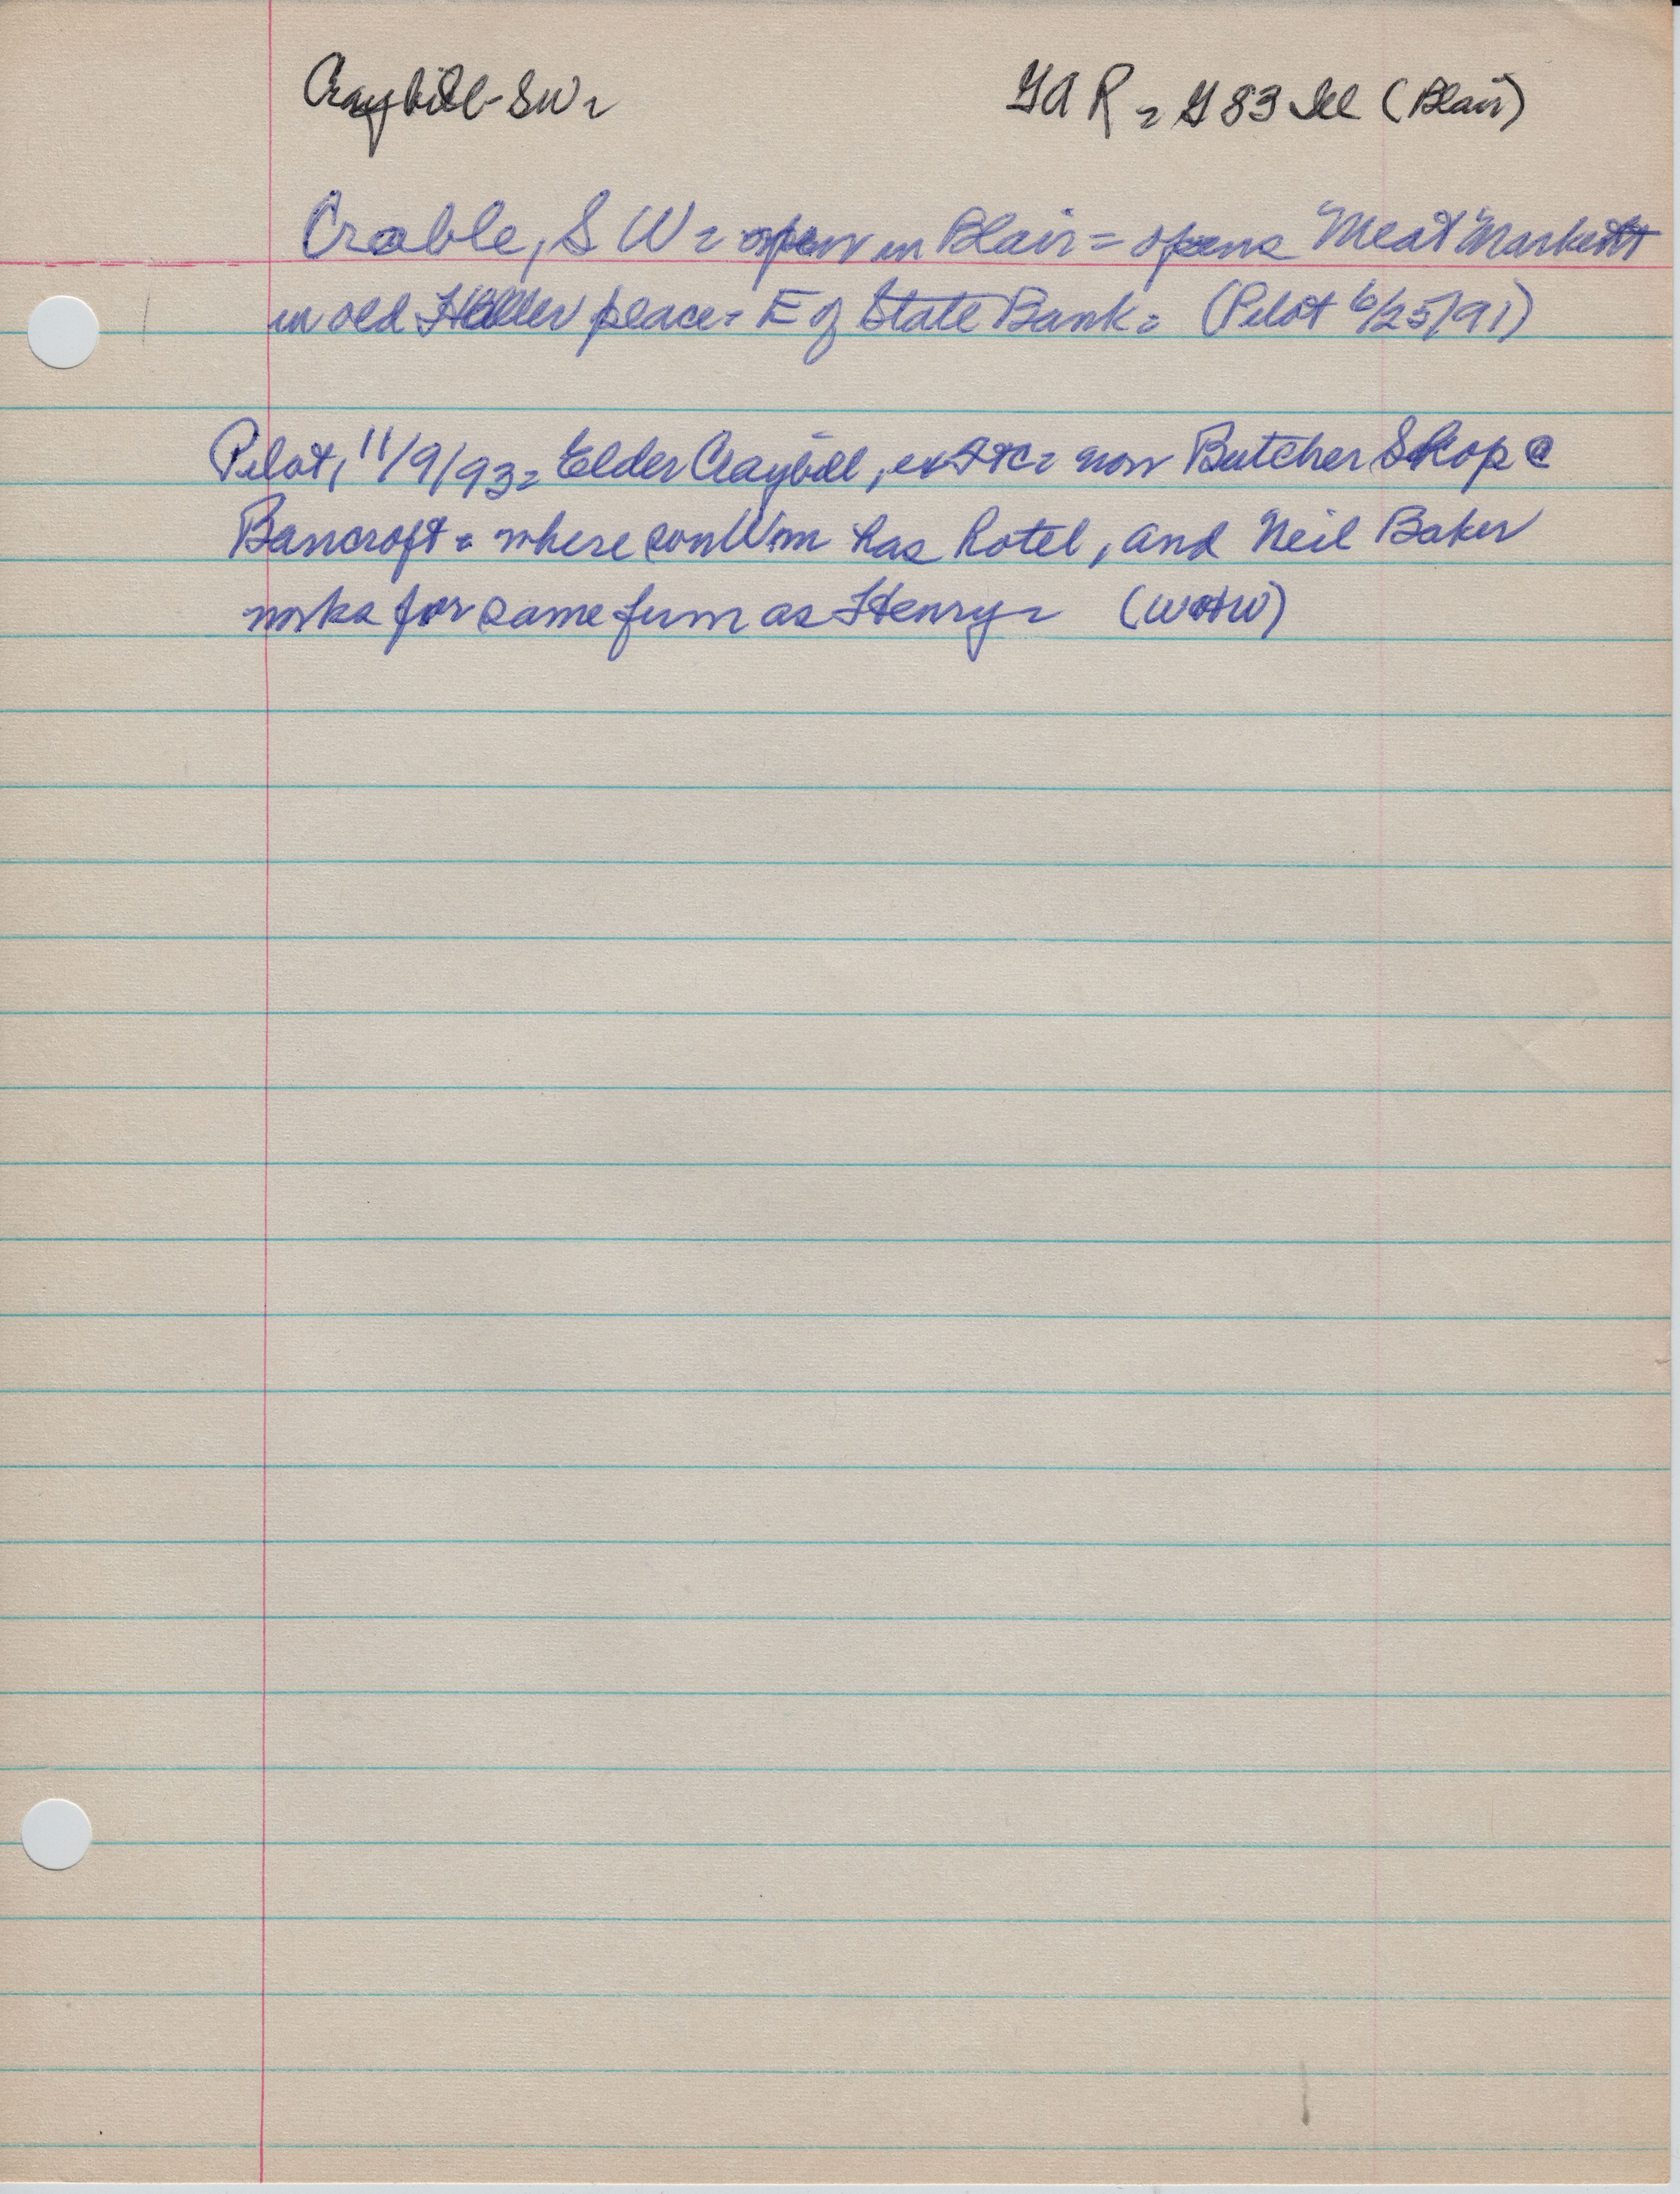 Craybill - SW = GAR = G 83 Ill (Blair)
Crable, S W = open in Blair = opens Meat Market
in old Haller place = E of State Bank = (Pilot 6/25/91)
Pilot, 11/9/93 = Elder Craybill, ex = now Butcher Shop @
Bancroft = where son Wm has hotel, and Neil Baker
works for same firm as Henry = (WotW)